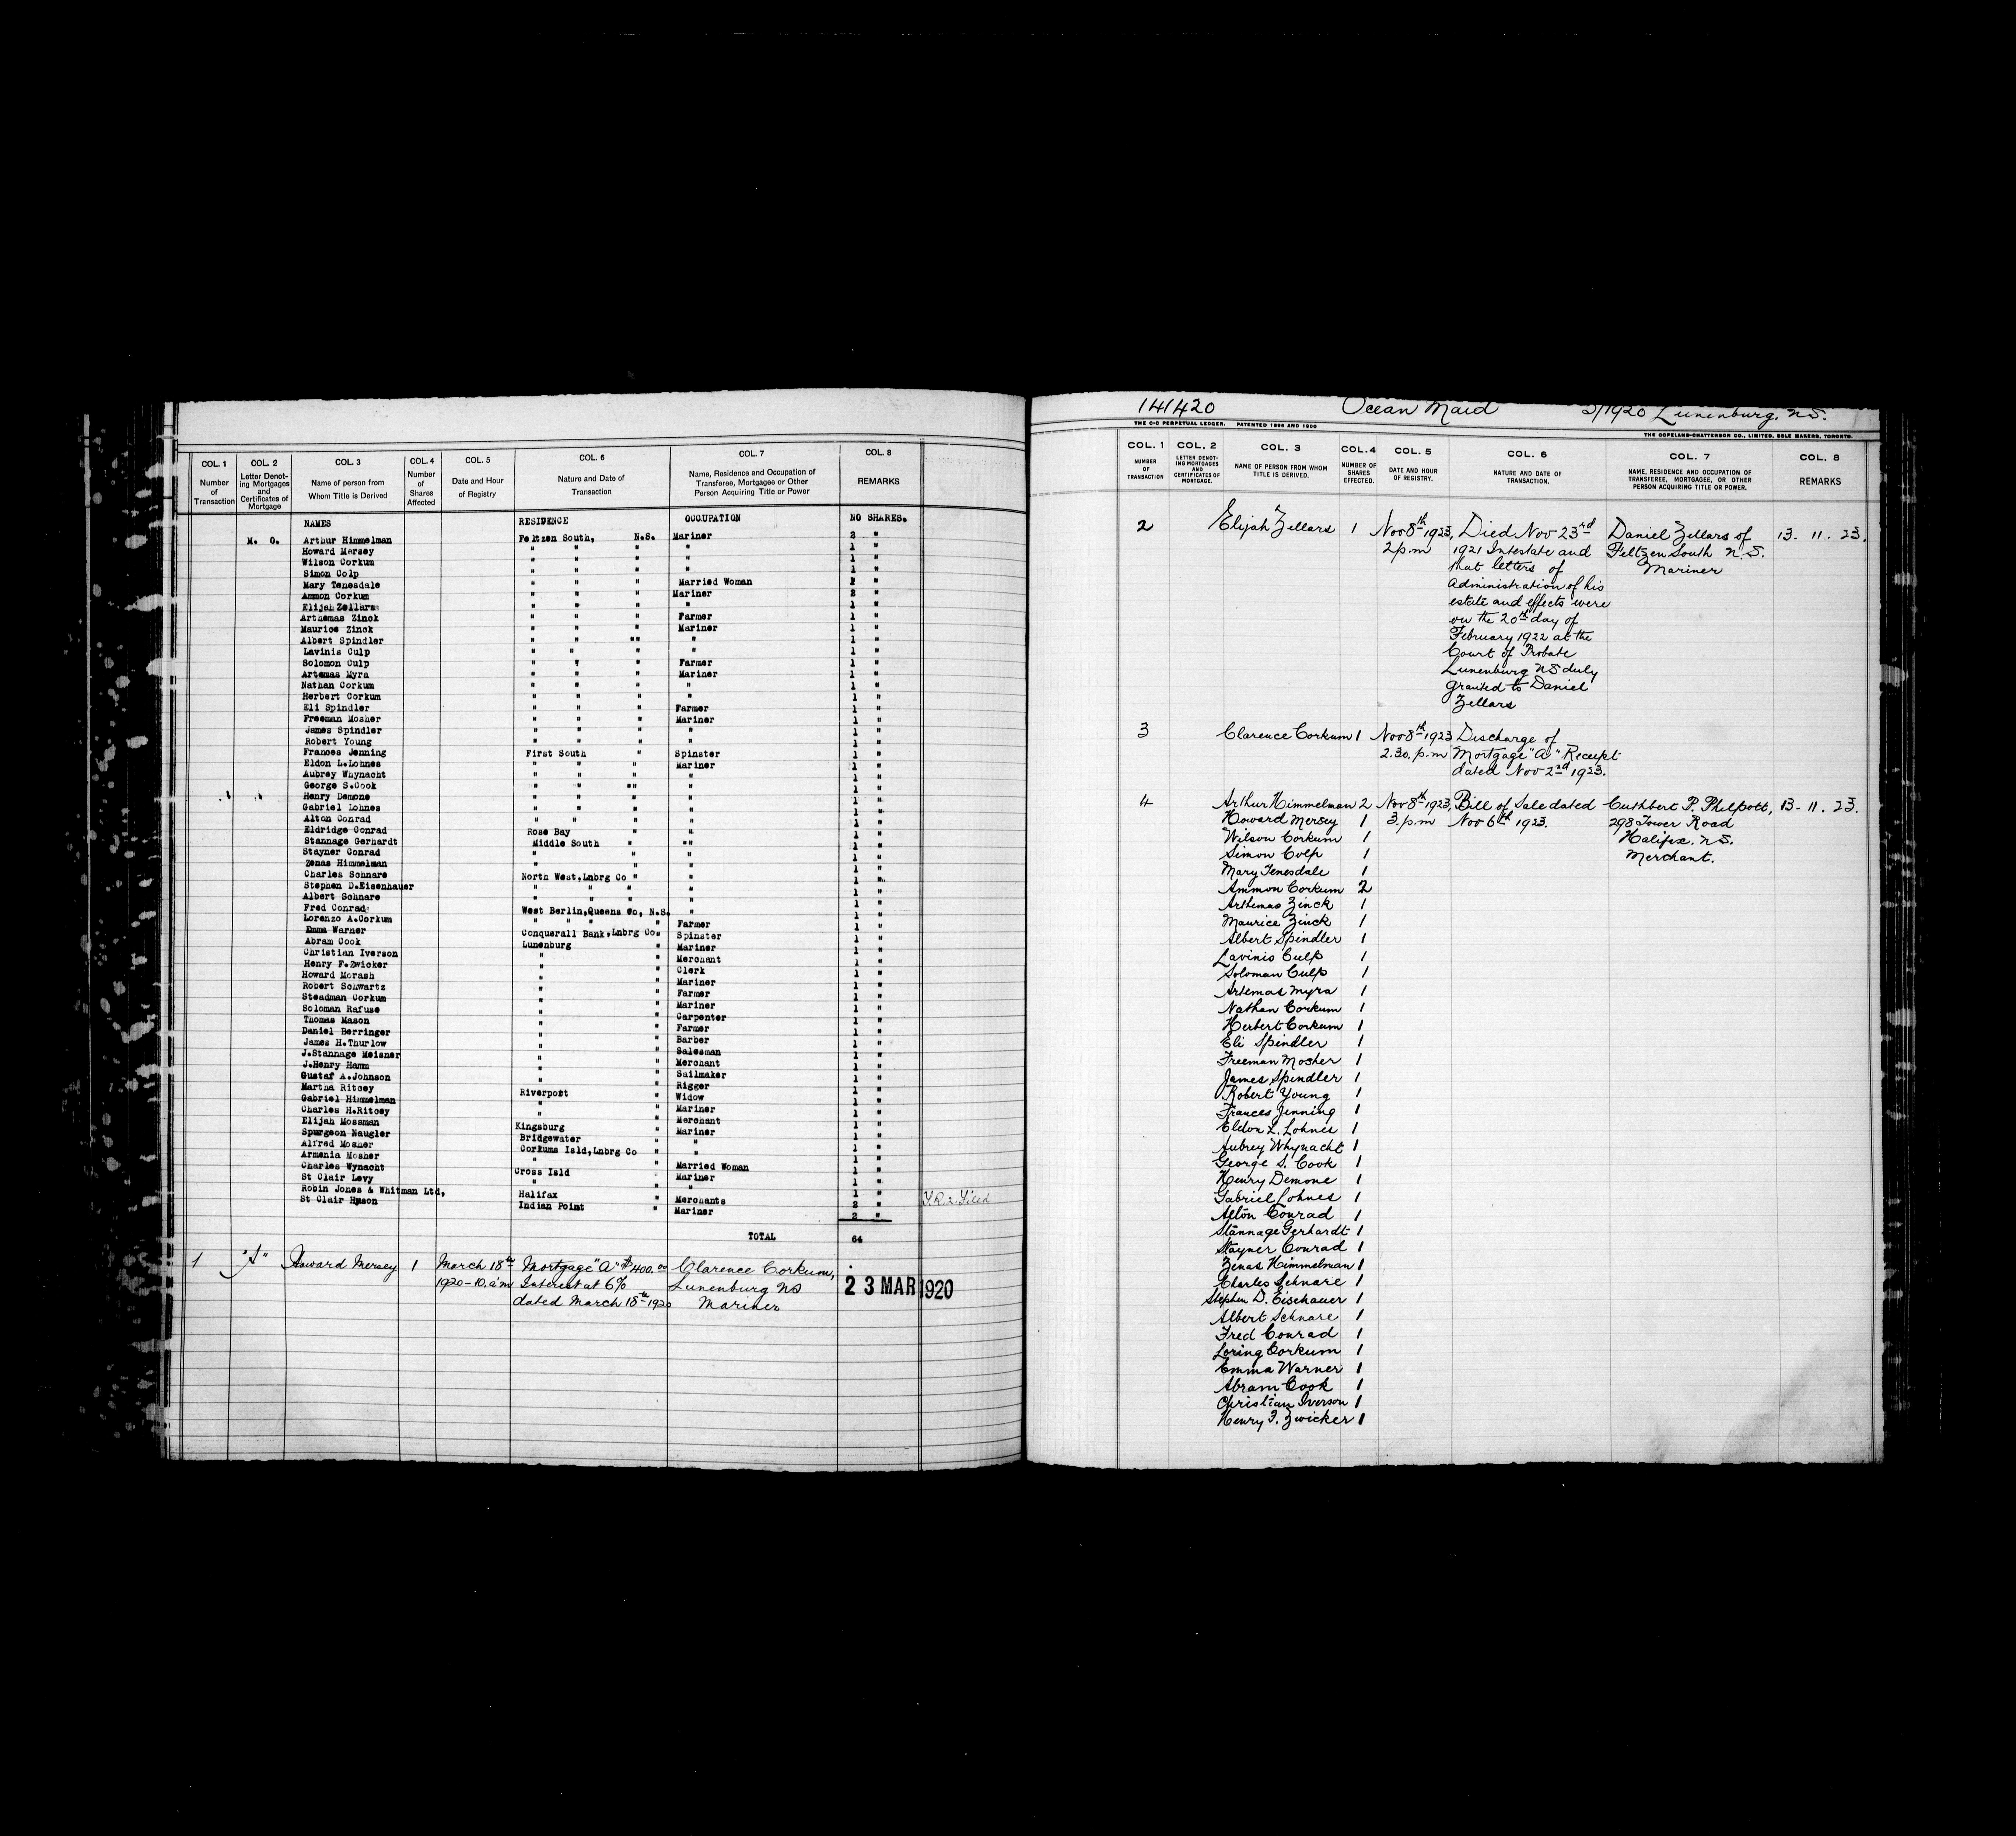 COL. 1 COL. 2 COL. 3 COL. 4 COL. 5 COL. 6 COL. 7 COL. 8
Number of Transaction Letter Denoting Mortgages and Certificates of Mortgage Name of person from Whom Title is Derived Number of Shares Affected Date and Hour of Registry Nature and Date of Transaction Name, Residence and Occupation of Transferee, Mortgagee or Other Person Acquiring Title or Power REMARKS
NAMES RESIDENCE OCCUPATION NO SHARES.
M. O. Arthur Himmelman Feltzen South, N.S. Mariner 2 "
Howard Mersey " " " " 1 "
Wilson Corkum " " " " 1 "
Simon Colp " " " " 1 "
Mary Tenesdale " " " Married Woman "
Ammon Corkum " " " Mariner 2 "
Elijah Zellars " " " " 1 "
Arthemas Zinck " " " Farmer 1 "
Maurice Zinck " " " Mariner 1 "
Albert Spindler " " "" " 1 "
Lavinis Culp " " " " 1 "
Solomon Culp " " " Farmer 1 "
Artemas Myra " " " Mariner 1 "
Nathan Corkum " " " " 1 "
Herbert Corkum " " " " 1 "
Eli Spindler " " " Farmer 1 "
Freeman Mosher " " " Mariner 1 "
James Spindler " " " " 1 "
Robert Young " " " " 1 "
Frances Jenning First South " Spinster 1 "
Eldon L.Lohnes " " " Mariner 1 "
Aubrey Whynacht " " " " 1 "
George S.Cook " " "" " 1 "
Henry Demone " " " " 1 "
Gabriel Lohnes " " " " 1 "
Alton Conrad " " " " 1 "
Eldridge Conrad Rose Bay " " 1 "
Stannage Gerhardt Middle South " "" 1 "
Stayner Conrad " " " 1 "
Zenas Himmelman " " " 1 "
Charles Schnare North West,Lnbrg Co " " 1 "
Stephen D.Eisenhauer " " " " 1 "
Albert Schnare " " " " 1 "
Fred Conrad West Berlin,Queens Co, N.S. " 1 "
Lorenzo A.Corkum " " " " Farmer 1 "
Emma Warner Conquerall Bank,Lnbrg Co. " Spinster 1 "
Abram Cook Lunenburg " Mariner 1 "
Christian Iverson " " Merchant 1 "
Henry F.Zwicker " " Clerk 1 "
Howard Morash " " Mariner 1 "
Robert Schwartz " " Farmer 1 "
Steadman Corkum " " Mariner 1 "
Soloman Rafuse " " Carpenter 1 "
Thomas Mason " " Farmer 1 "
Daniel Berringer " " Barber 1 "
James H.Thurlow " " Salesman 1 "
J.Stannage Meisner " " Merchant 1 "
J.Henry Hamm " " Sailmaker 1 "
Gustaf A.Johnson " " Rigger 1 "
Martha Ritcey Riverport " Widow 1 "
Gabriel Himmelman " " Mariner 1 "
Charles H.Ritcey " " Merchant 1 "
Elijah Mossman Kingsburg " Mariner 1 "
Spurgeon Naugler Bridgewater " " 1 "
Alfred Mosher Corkums Isld,Lnbrg Co " " 1 "
Armenia Mosher " " Married Woman 1 "
Charles Wynacht Cross Isld " Mariner 1 "
St Clair Levy " " " 1 "
Robin Jones & Whitman Ltd, Halifax " Merchants 2 "
St Clair Hyson Indian Point " Mariner 2 "
TOTAL 64
1 "A" Howard Mersey 1 March 18th Mortgage "A" $400.00 Clarence Corkum,
1920-10.a.m Interest at 6% Lunenburg NS 23 MAR 1920
dated March 18th 1920 Mariner
141420 Ocean Maid 5/1920 Lunenburg. N.S.
THE C-C PERPETUAL LEDGER. PATENTED 1898 AND 1900
THE COPELAND-CHATTERSON CO., LIMITED, SOLE MAKERS, TORONTO.
COL. 1 COL. 2 COL. 3 COL.4 COL. 5 COL. 6 COL. 7 COL. 8
NUMBER OF TRANSACTION LETTER DENOTING MORTGAGES AND CERTIFICATES OF MORTGAGE. NAME OF PERSON FROM WHOM TITLE IS DERIVED. NUMBER OF SHARES EFFECTED. DATE AND HOUR OF REGISTRY. NATURE AND DATE OF TRANSACTION. NAME, RESIDENCE AND OCCUPATION OF TRANSFEREE, MORTGAGEE, OR OTHER PERSON ACQUIRING TITLE OR POWER. REMARKS
2 Elijah Zellars 1 Nov 8th 1923, Died Nov 23rd Daniel Zellars of 13. 11. 23.
2 p.m 1921 Intestate and Feltzen South N.S.
that letters of Mariner
Administration of his
estate and effects were
on the 20th day of
February 1922 at the
Court of Probate
Lunenburg NS duly
granted to Daniel
Zellars
3 Clarence Corkum 1 Nov 8th 1923 Discharge of
2.30. p.m Mortgage "A" Receipt
dated Nov 2nd 1923.
4 Arthur Himmelman 2 Nov 8th 1923, Bill of Sale dated Cuthbert P. Philpott, 13- 11. 23.
Howard Mersey 1 3. p.m Nov 6th 1923. 298 Tower Road
Wilson Corkum 1 Halifax. N.S.
Simon Colp 1 Merchant.
Mary Tenesdale 1
Ammon Corkum 2
Arthemas Zinck 1
Maurice Zinck 1
Albert Spindler 1
Lavinis Culp 1
Soloman Culp 1
Artemas Myra 1
Nathan Corkum 1
Herbert Corkum 1
Eli Spindler 1
Freeman Mosher 1
James Spindler 1
Robert Young 1
Frances Jenning 1
Eldon L. Lohnes 1
Aubrey Whynacht 1
George S. Cook 1
Henry Demone 1
Gabriel Lohnes 1
Alton Conrad 1
Stannage Gerhardt 1
Stayner Conrad 1
Zenas Himmelman 1
Charles Schnare 1
Stephen D. Eischauer 1
Albert Schnare 1
Fred Conrad 1
Loring Corkum 1
Emma Warner 1
Abram Cook 1
Christian Iverson 1
Henry F. Zwicker 1